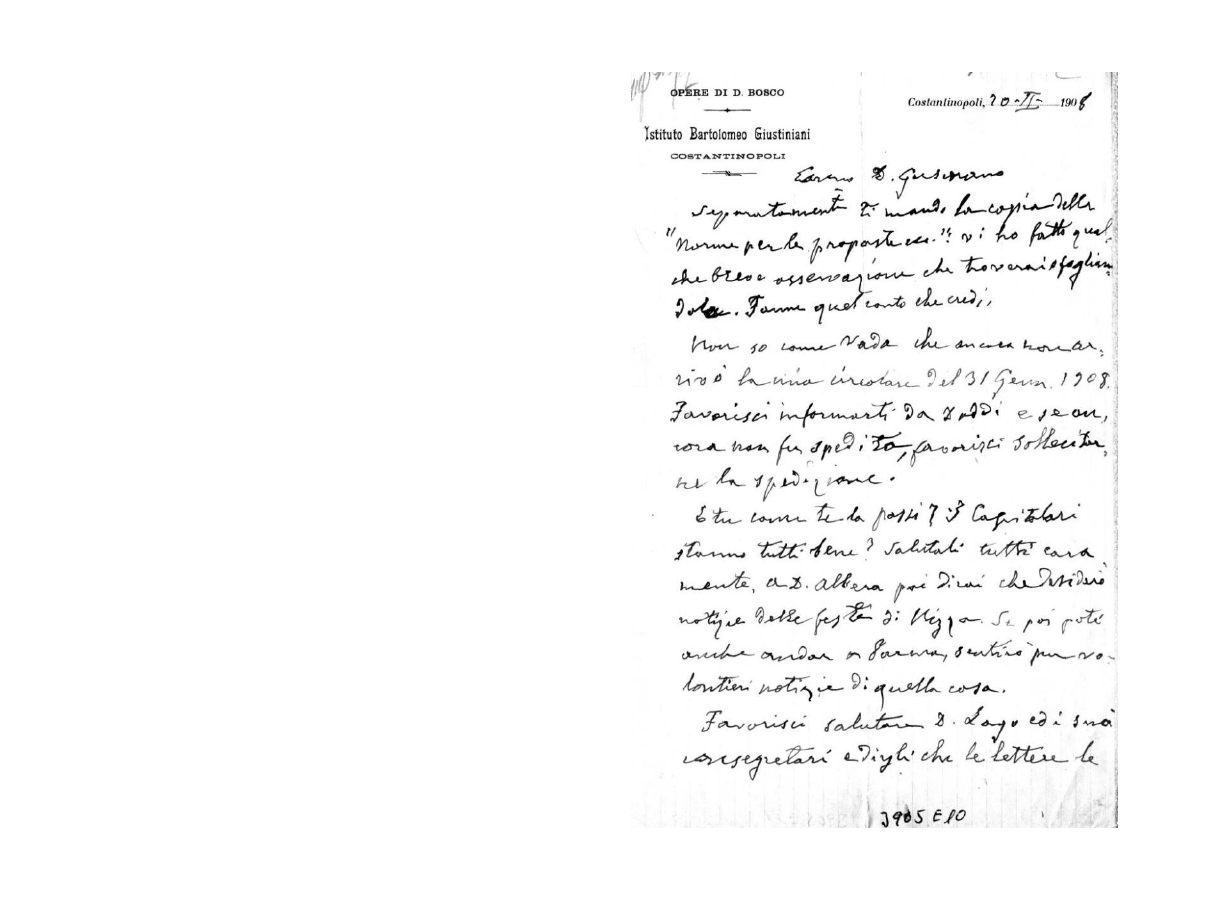 OPERE DI D. BOSCO
Istituto Bartolomeo Giustiniani
COSTANTINOPOLI
Costantinopoli, 20-II- 1908
Caro D. Gusmano
Separatamente ti mando la copia delle
"Norme per le proposte ecc.": vi ho fatto qual-
che breve osservazione che troverai sfoglian-
dola. Fanne quel conto che credi.
Non so come vada che ancora non ar-
rivò la mia circolare del 31 Genn. 1908.
Favorisci informarti da e se an-
cora non fu spedita, favorisci sollecitar-
ne la spedizione.
E tu come te la passi? I Capitolari
stanno tutti bene? Salutali tutti cara
mente, a D. Albera poi dirai che desidero
notizie delle feste di Nizza. Se poi poté
anche andar a Parma, sentirò pur vo-
lontieri notizie di quella cosa.
Favorisci salutare D. Lago ed i suoi
consegretari e digli che le lettere le
J905 E10